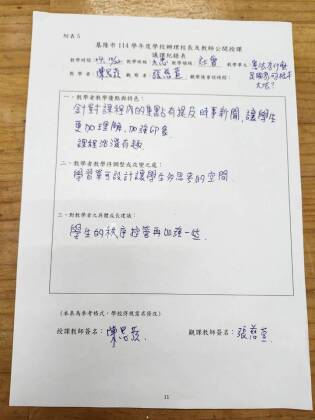 附表5
基隆市 114 學年度學校辦理校長及教師公開授課
議課紀錄表
教學班級： 教學領域：社會 教學單元：
教學者：陳思蓓 觀課者：張慈萱 觀課後會談時間：
一、教學者教學優點與特色：
針對課程內的重點有提及時事新聞，讓學生
更加理解，加強印象
課程活潑有趣
二、教學者教學待調整或改變之處：
學習單可設計讓學生多思考的空間
三、對教學者之具體成長建議：
學生的秩序控管再加強一些
(本表為參考格式，學校得視需求修改)
授課教師簽名： 觀課教師簽名：張慈萱
11